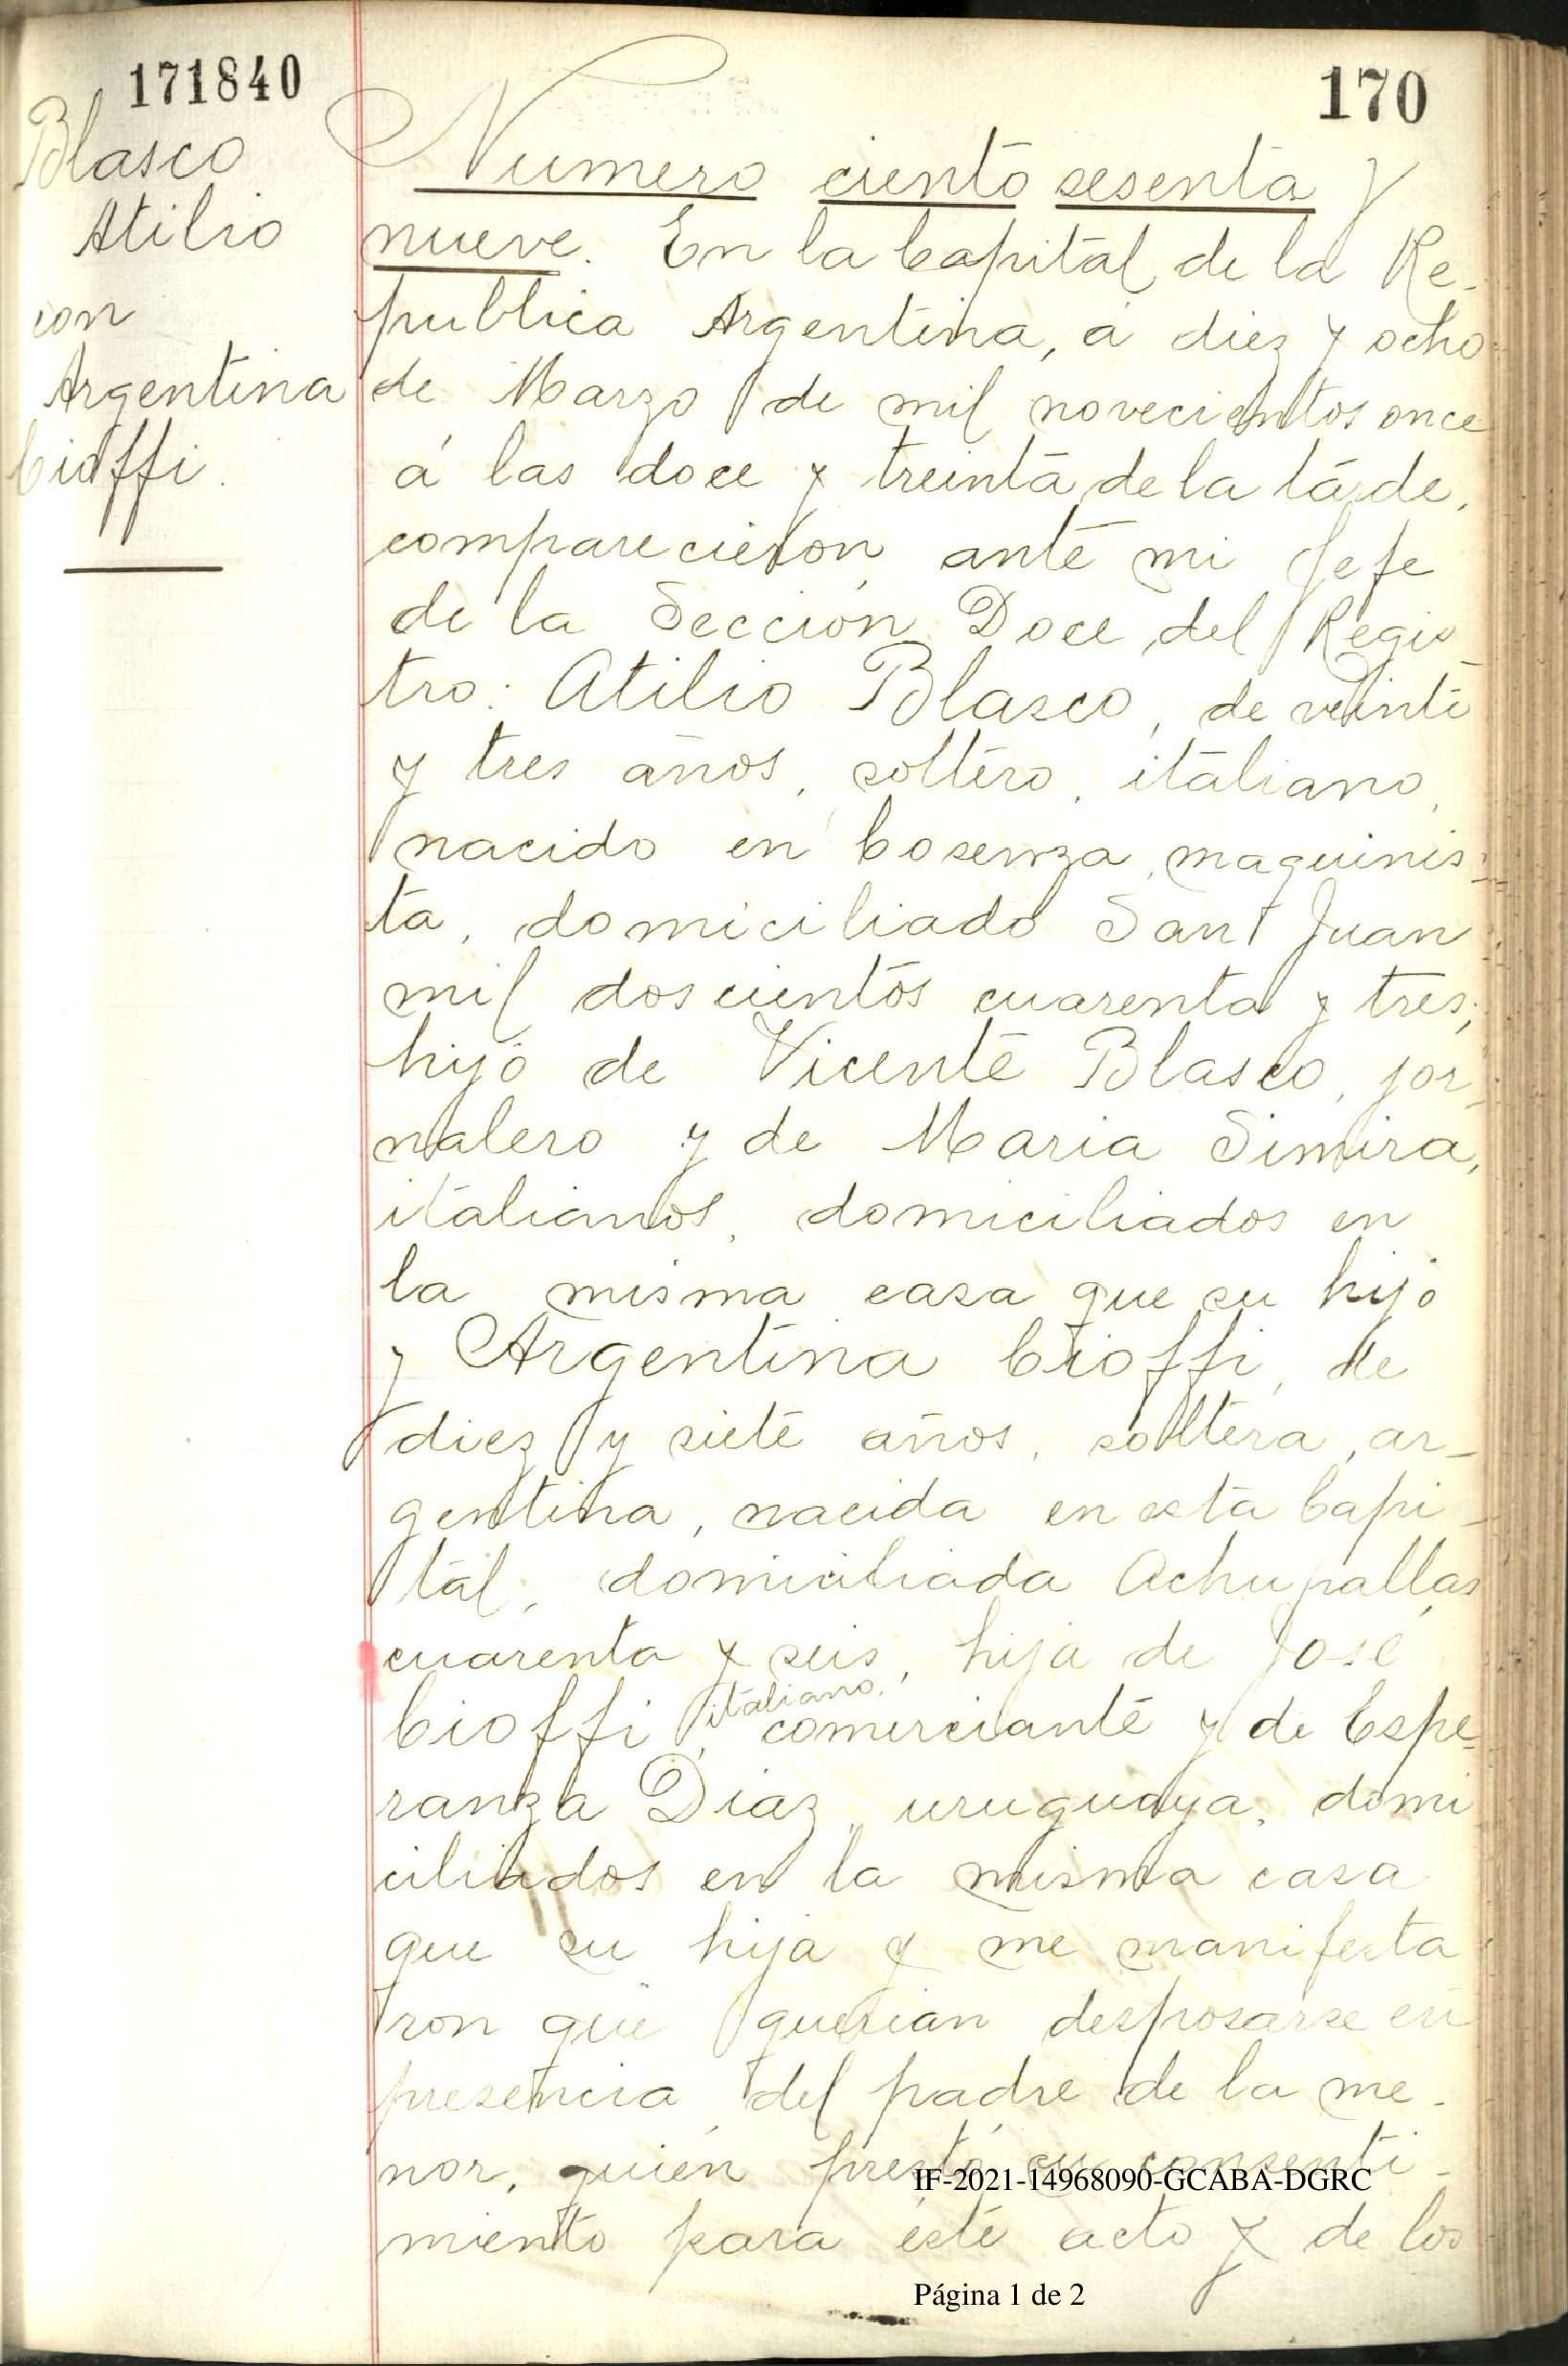 171840
170
Blasco
Atilio
con
Argentina
Cioffi.
Numero ciento sesenta y
nueve. En la Capital de la Re-
publica Argentina, á diez y ocho
de Marzo de mil novecientos once
á las doce y treinta de la tarde,
comparecieron ante mi Jefe
de la Sección Doce del Regis
tro: Atilio Blasco, de veinte
y tres años, soltero, italiano,
nacido en Cosenza, maquinis-
ta, domiciliado San Juan
mil doscientos cuarenta y tres;
hijo de Vicente Blasco, jor-
nalero y de Maria Simira,
italianos, domiciliados en
la misma casa que su hijo
y Argentina Cioffi, de
diez y siete años, soltera, ar-
gentina, nacida en esta Capi-
tal, domiciliada Achupallas
cuarenta y seis, hija de José
Cioffi, italiano, comerciante y de Espe-
ranza Diaz, uruguaya, domi
ciliados en la misma casa
que su hija y me manifesta
ron que querian desposarse en
presencia del padre de la me-
nor, quién prestó su consenti-
miento para éste acto y de los
IF-2021-14968090-GCABA-DGRC
Página 1 de 2